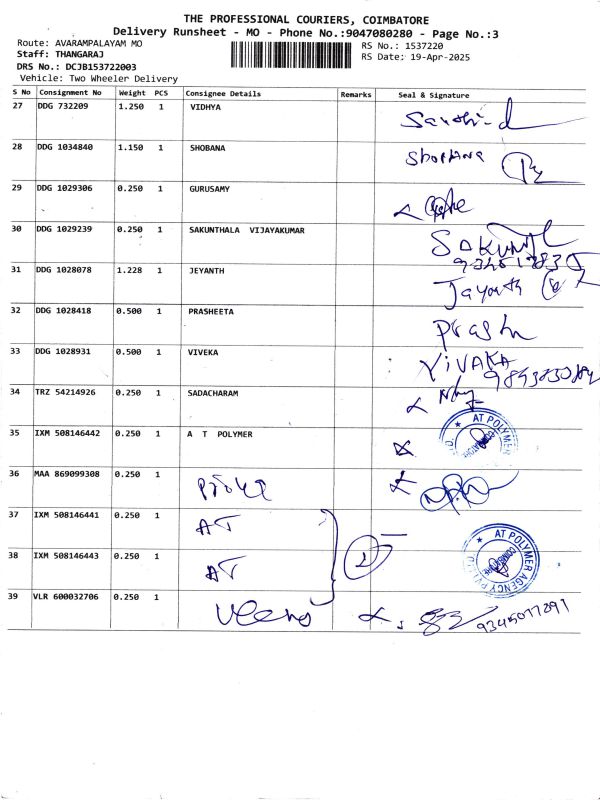 THE PROFESSIONAL COURIERS, COIMBATORE
Delivery Runsheet - MO - Phone No.:9047080280 - Page No.:3
Route: AVARAMPALAYAM MO
RS No.: 1537220
Staff: THANGARAJ
RS Date: 19-Apr-2025
DRS No.: DCJB153722003
Vehicle: Two Wheeler Delivery
S No Consignment No Weight PCS Consignee Details Remarks Seal & Signature
27 DDG 732209 1.250 1 VIDHYA
28 DDG 1034840 1.150 1 SHOBANA Shobhana
29 DDG 1029306 0.250 1 GURUSAMY
30 DDG 1029239 0.250 1 SAKUNTHALA VIJAYAKUMAR
31 DDG 1028078 1.228 1 JEYANTH Jayanth
32 DDG 1028418 0.500 1 PRASHEETA
33 DDG 1028931 0.500 1 VIVEKA VIVAKA
34 TRZ 54214926 0.250 1 SADACHARAM
35 IXM 508146442 0.250 1 A T POLYMER AT POLYMER
36 MAA 869099308 0.250 1
37 IXM 508146441 0.250 1 AT
38 IXM 508146443 0.250 1 AT 2 AT POLYMER AGENCY PVT. LTD. COIMBATORE
39 VLR 600032706 0.250 1